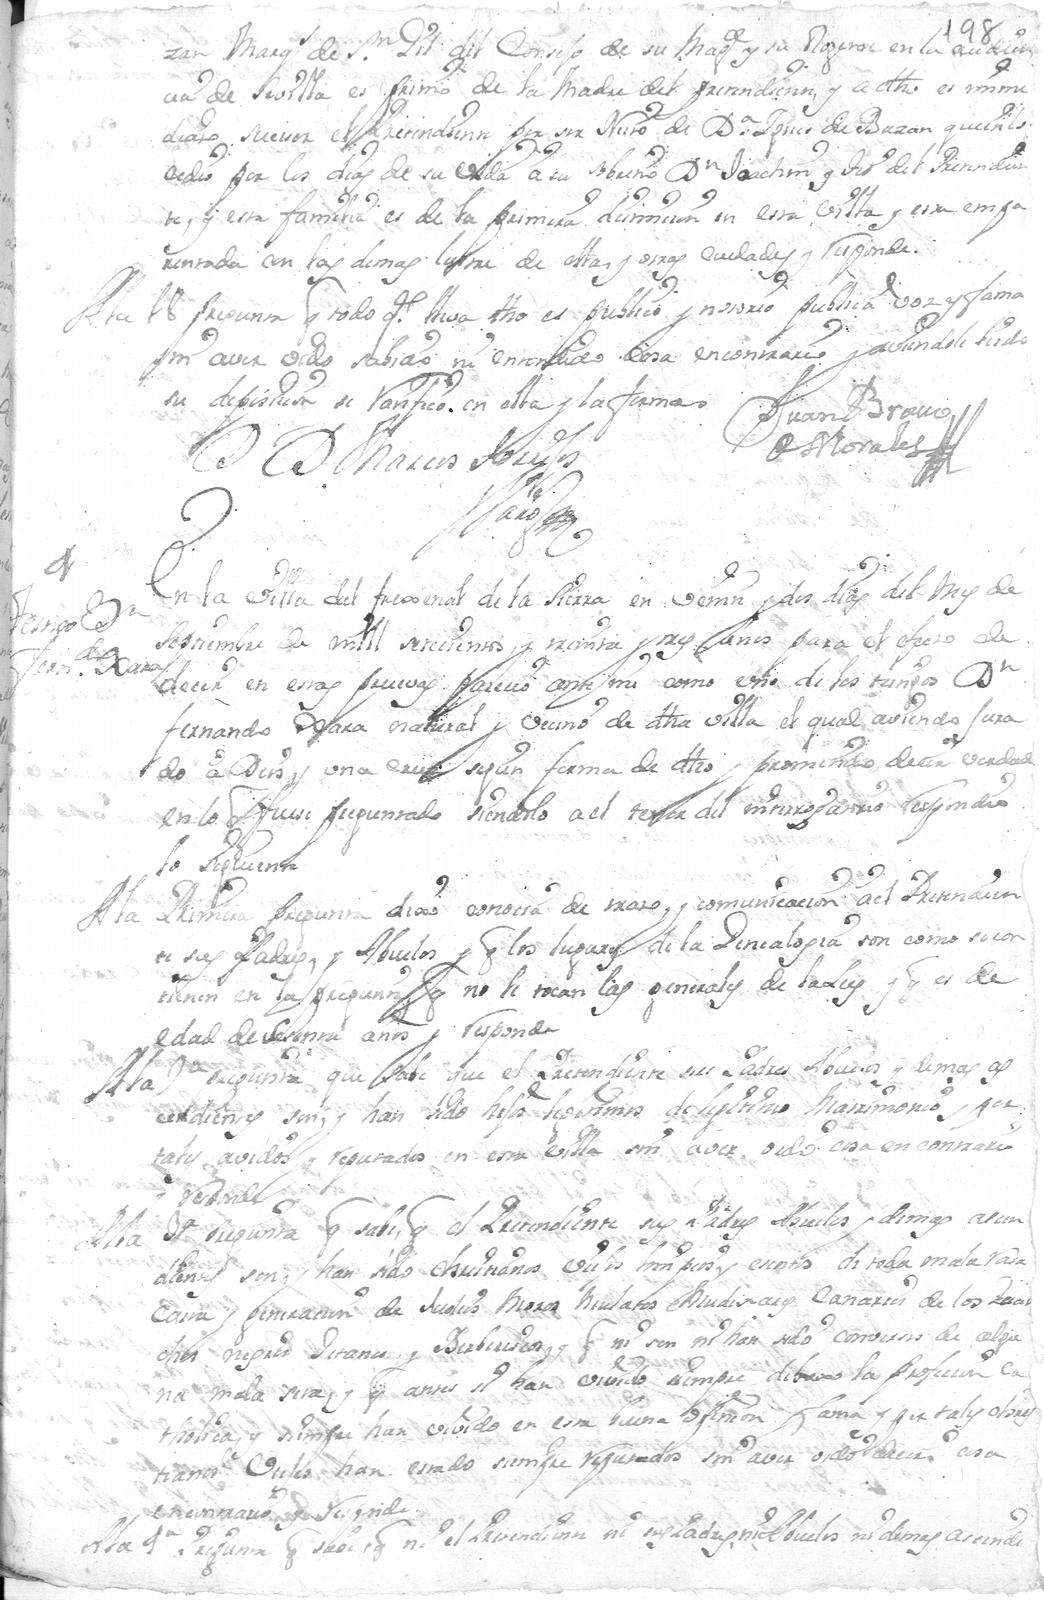 198
zan Marqs de Sn Gil del Consejo de su Magd y su Rexente en la audien
cia de Sevilla es primo de la Madre del pretendiente, y a dho es imme
diato suceror el Pretendiente por ser Nieto de Da Ignes de Bazan quien le
cedio por los dias de su vida a su sobrino Dn Joachin y tio del Pretendien
te, y esta familia es de la primera distincion en esta villa y esta empa
rentada con las demas lustre de ella, y otras ciudades y responde.
A la 18 pregunta q todo qto lleva dho es publico y notorio publica voz y fama
sin aver oido sabido ni entendido cosa en contrario y aviendole leido
su deposicion se ratifico en ella y la firmo
Juan Bravo
de Morales
D D Marcos
Haro
4
Testigo Dn
Fern.do Xara
En la villa del frexenal de la Sierra en veinte y dos dias del Mes de
Septiembre de mill setecientos, y treinta y tres años para el efecto de
decir en estas pruevas parecio ante mi como uno de los testigos Dn
fernando Xara natural y vecino de dha villa el qual aviendo jura
do a Dios, y una cruz segun forma de dro y prometido decir verdad
en lo q fuese preguntado siendolo a el tenor del interrogatorio respondio
lo siguiente
A la Primera pregunta dixo conocia de trato, y comunicacion a el Pretendien
te sus Padres, y Abuelos y q los lugares de la Genealogia son como se con
tienen en la pregunta, q no le tocan las generales de la Ley y q es de
edad de sesenta años y responde
A la 2a pregunta que sabe que el Pretendiente sus Padres Abuelos y demas as
cendientes son, y han sido hijos legitimos de legitimo Matrimonio, y por
tales avidos y reputados en esta villa sin aver oido cosa en contrario
y responde
A la 3a pregunta q sabe, q el Pretendiente sus Padres Abuelos y demas ascen
dientes son, y han sido christianos viejos limpios, y exemptos de toda mala raza
casta y generacion de Judios Moros Mulatos Canarios de los
negros Gitanos y Berberiscos, y q ni son ni han sido conversos de algu
na mala secta, y q antes si han vivido siempre debaxo la profesion Ca
tholica, y siempre han vivido en esta buena opinion y fama y por tales chris
tianos viejos han estado siempre reputados sin aver oido decir cosa
en contrario y responde
A la 4a Pregunta q sabe q ni el Pretendiente ni sus Padres ni Abuelos ni demas ascendi